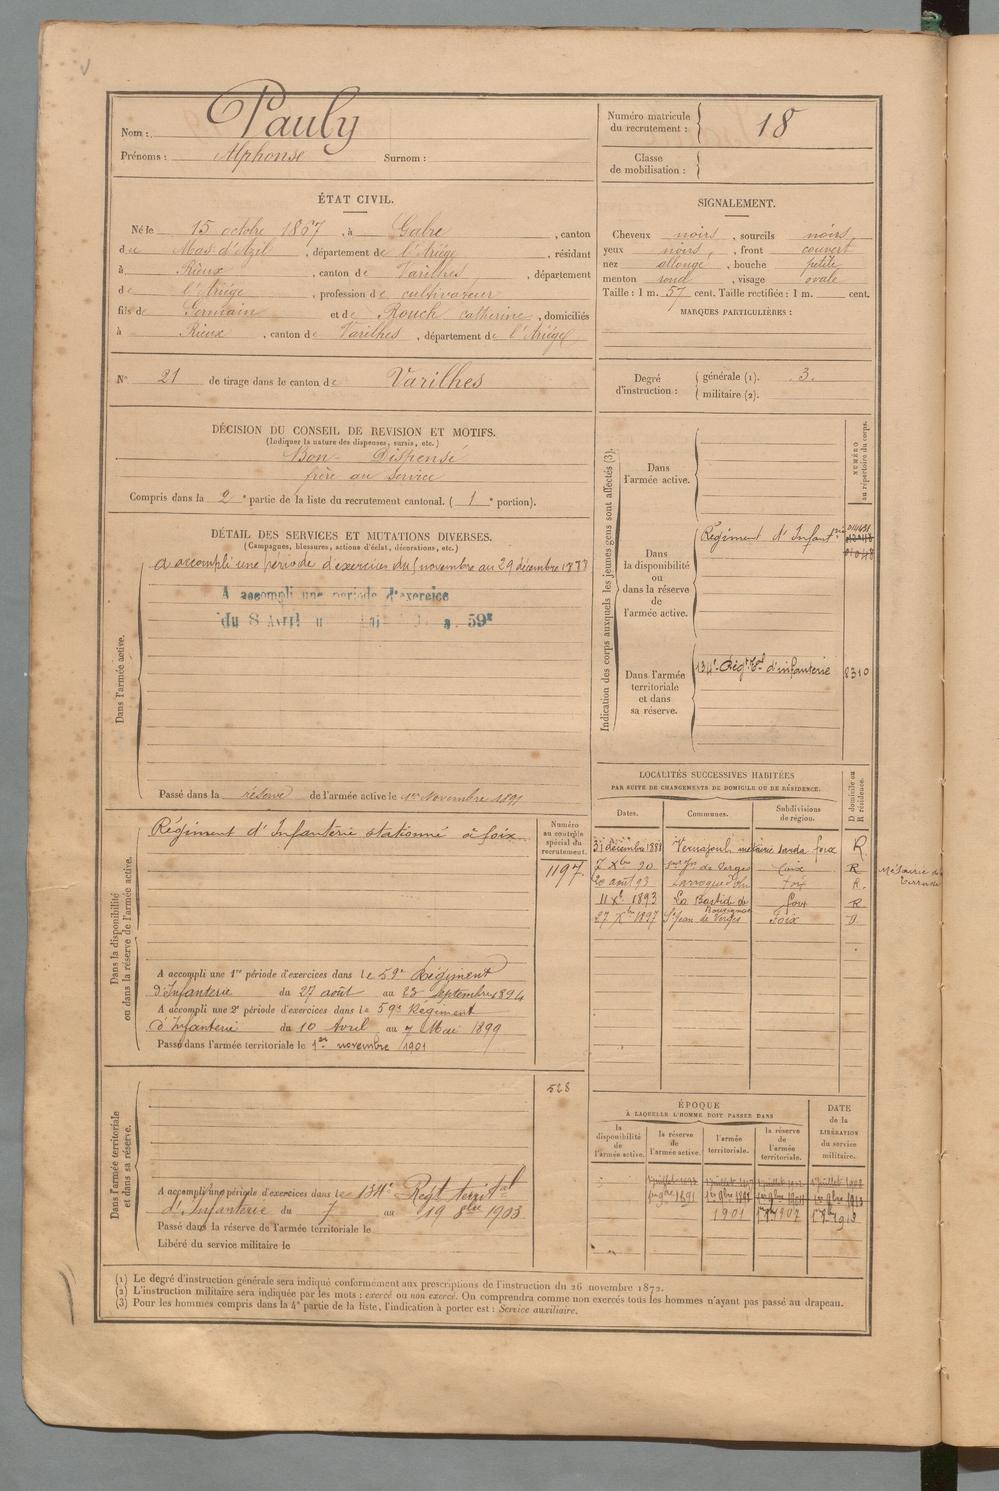 Nom : Pauly
Prénoms : Alphonse Surnom :
Numéro matricule du recrutement : 18
Classe de mobilisation :
ÉTAT CIVIL.
Né le 15 octobre 1867, à Gabre, canton
du Mas-d'Azil, département de l'Ariège, résidant
à Rieux, canton de Varilhes, département
de l'Ariège, profession de cultivateur
fils de Germain et de Rouch Catherine, domiciliés
à Rieux, canton de Varilhes, département de l'Ariège
N° 21 de tirage dans le canton de Varilhes
SIGNALEMENT.
Cheveux noirs, sourcils noirs
yeux noirs, front couvert
nez allongé, bouche petite
menton rond, visage ovale
Taille : 1 m. 57 cent. Taille rectifiée : 1 m. cent.
MARQUES PARTICULIÈRES :
Degré d'instruction : générale (1). 3.
militaire (2).
DÉCISION DU CONSEIL DE REVISION ET MOTIFS.
(Indiquer la nature des dispenses, sursis, etc.)
Bon - Dispensé
frère au service
Compris dans la 2e partie de la liste du recrutement cantonal. (1e portion).
DÉTAIL DES SERVICES ET MUTATIONS DIVERSES.
(Campagnes, blessures, actions d'éclat, décorations, etc.)
Dans l'armée active.
a accompli une période d'exercices du novembre au 29 décembre
A accompli une période d'exercice
du 8 Avril 59e
Passé dans la réserve de l'armée active le 1er Novembre 1891
Indication des corps auxquels les jeunes gens sont affectés (3).
NUMÉRO au répertoire du corps.
Dans l'armée active.
Dans la disponibilité ou dans la réserve de l'armée active.
Régiment d'Infanterie
Dans l'armée territoriale et dans sa réserve.
134e Régt Tal d'infanterie 8310
Dans la disponibilité ou dans la réserve de l'armée active.
Régiment d'Infanterie stationné à foix
Numéro au contrôle spécial du recrutement.
1197
A accompli une 1re période d'exercices dans le 59e Régiment
d'Infanterie du 27 août au 23 septembre 1894
A accompli une 2e période d'exercices dans le 59e Régiment
d'Infanterie du 10 Avril au 7 Mai 1899
Passé dans l'armée territoriale le 1er novembre 1901
LOCALITÉS SUCCESSIVES HABITÉES
PAR SUITE DE CHANGEMENTS DE DOMICILE OU DE RÉSIDENCE.
Dates. Communes. Subdivisions de région. D domicile ou R résidence.
31 décembre 1888 Vernajoul métairie foix R
7 Xbre 90 St Jn de Verges foix R
20 août 93 Laroque foix R.
11 Xe 1893 La Bastide de foix R
27 Xbre 1897 St Jean de Verges Foix D
Métairie de
Dans l'armée territoriale et dans sa réserve.
528
A accompli une période d'exercices dans le 134e Régt territal
d'Infanterie du 7 au 19 8bre 1903
Passé dans la réserve de l'armée territoriale le
Libéré du service militaire le
ÉPOQUE
À LAQUELLE L'HOMME DOIT PASSER DANS
la disponibilité de l'armée active.
la réserve de l'armée active.
l'armée territoriale.
la réserve de l'armée territoriale.
DATE de la LIBÉRATION du service militaire.
1er 9bre 1891
1901 1er 9bre 1907 1er 9bre 1913
(1) Le degré d'instruction générale sera indiqué conformément aux prescriptions de l'instruction du 26 novembre 1872.
(2) L'instruction militaire sera indiquée par les mots : exercé ou non exercé. On comprendra comme non exercés tous les hommes n'ayant pas passé au drapeau.
(3) Pour les hommes compris dans la 4e partie de la liste, l'indication à porter est : Service auxiliaire.